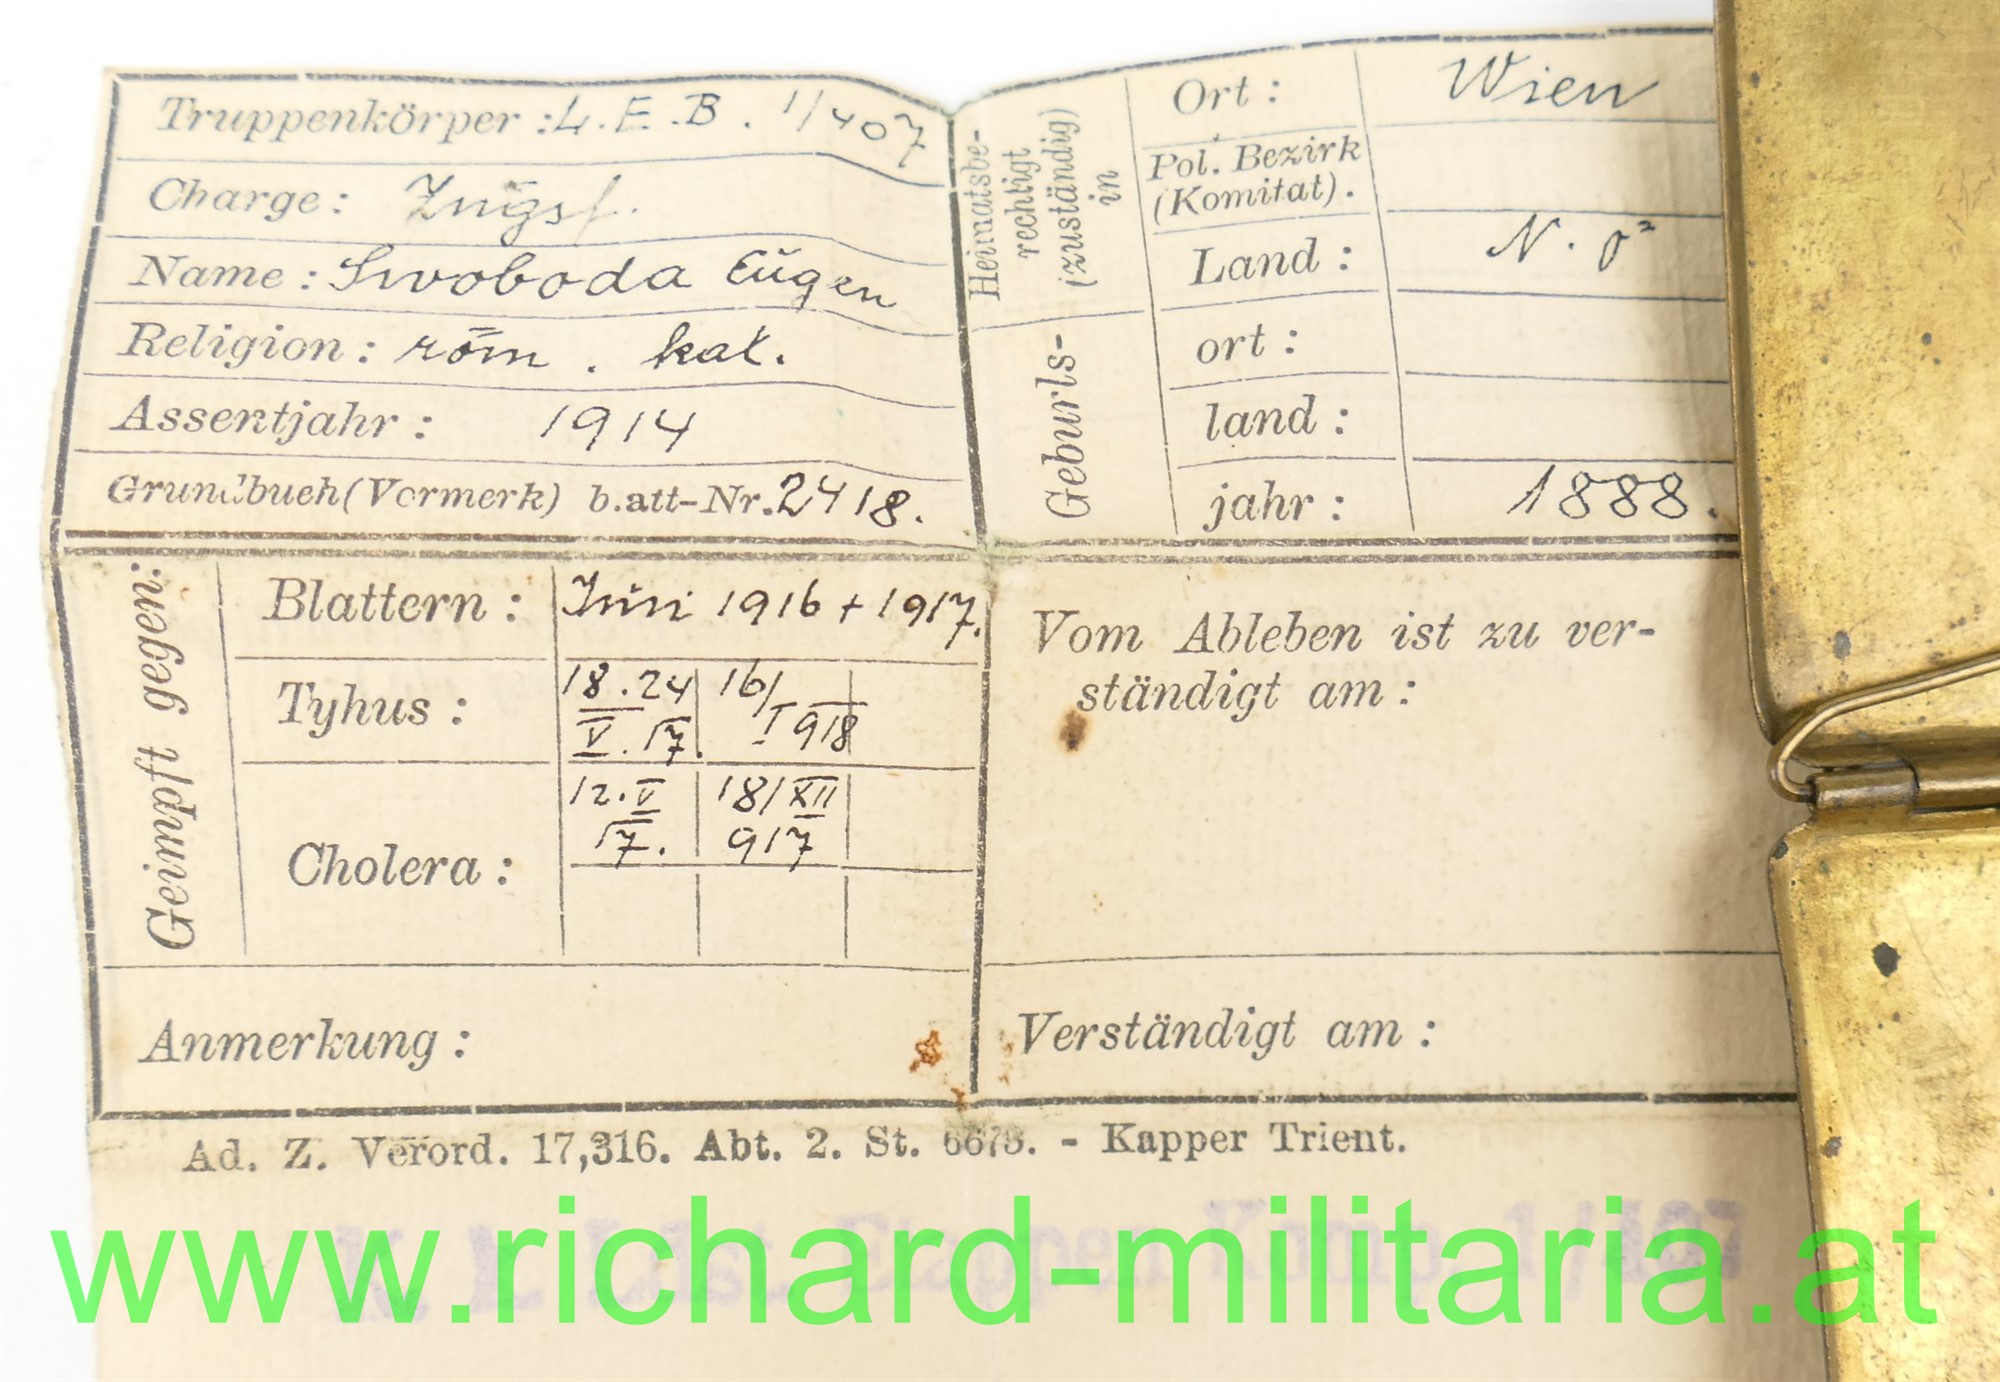 Truppenkörper : L. E. B. 1/407
Charge : Zugsf.
Name : Swoboda Eugen
Religion : röm. kat.
Assentjahr : 1914
Grundbuch (Vormerk) b.att-Nr. 2418.
Heimatsbe-
rechtigt
(zuständig)
in
Ort : Wien
Pol. Bezirk
(Komitat).
Land : N. Ö
Geburts-
ort :
land :
jahr : 1888.
Geimpft gegen:
Blattern : Juni 1916 + 1917.
Tyhus : 18. 24 16/
V. 17. I 918
Cholera : 12. V 18/XII
17. 917
Vom Ableben ist zu ver-
ständigt am :
Anmerkung :
Verständigt am :
Ad. Z. Verord. 17,316. Abt. 2. St. 6678. - Kapper Trient.
www.richard-militaria.at